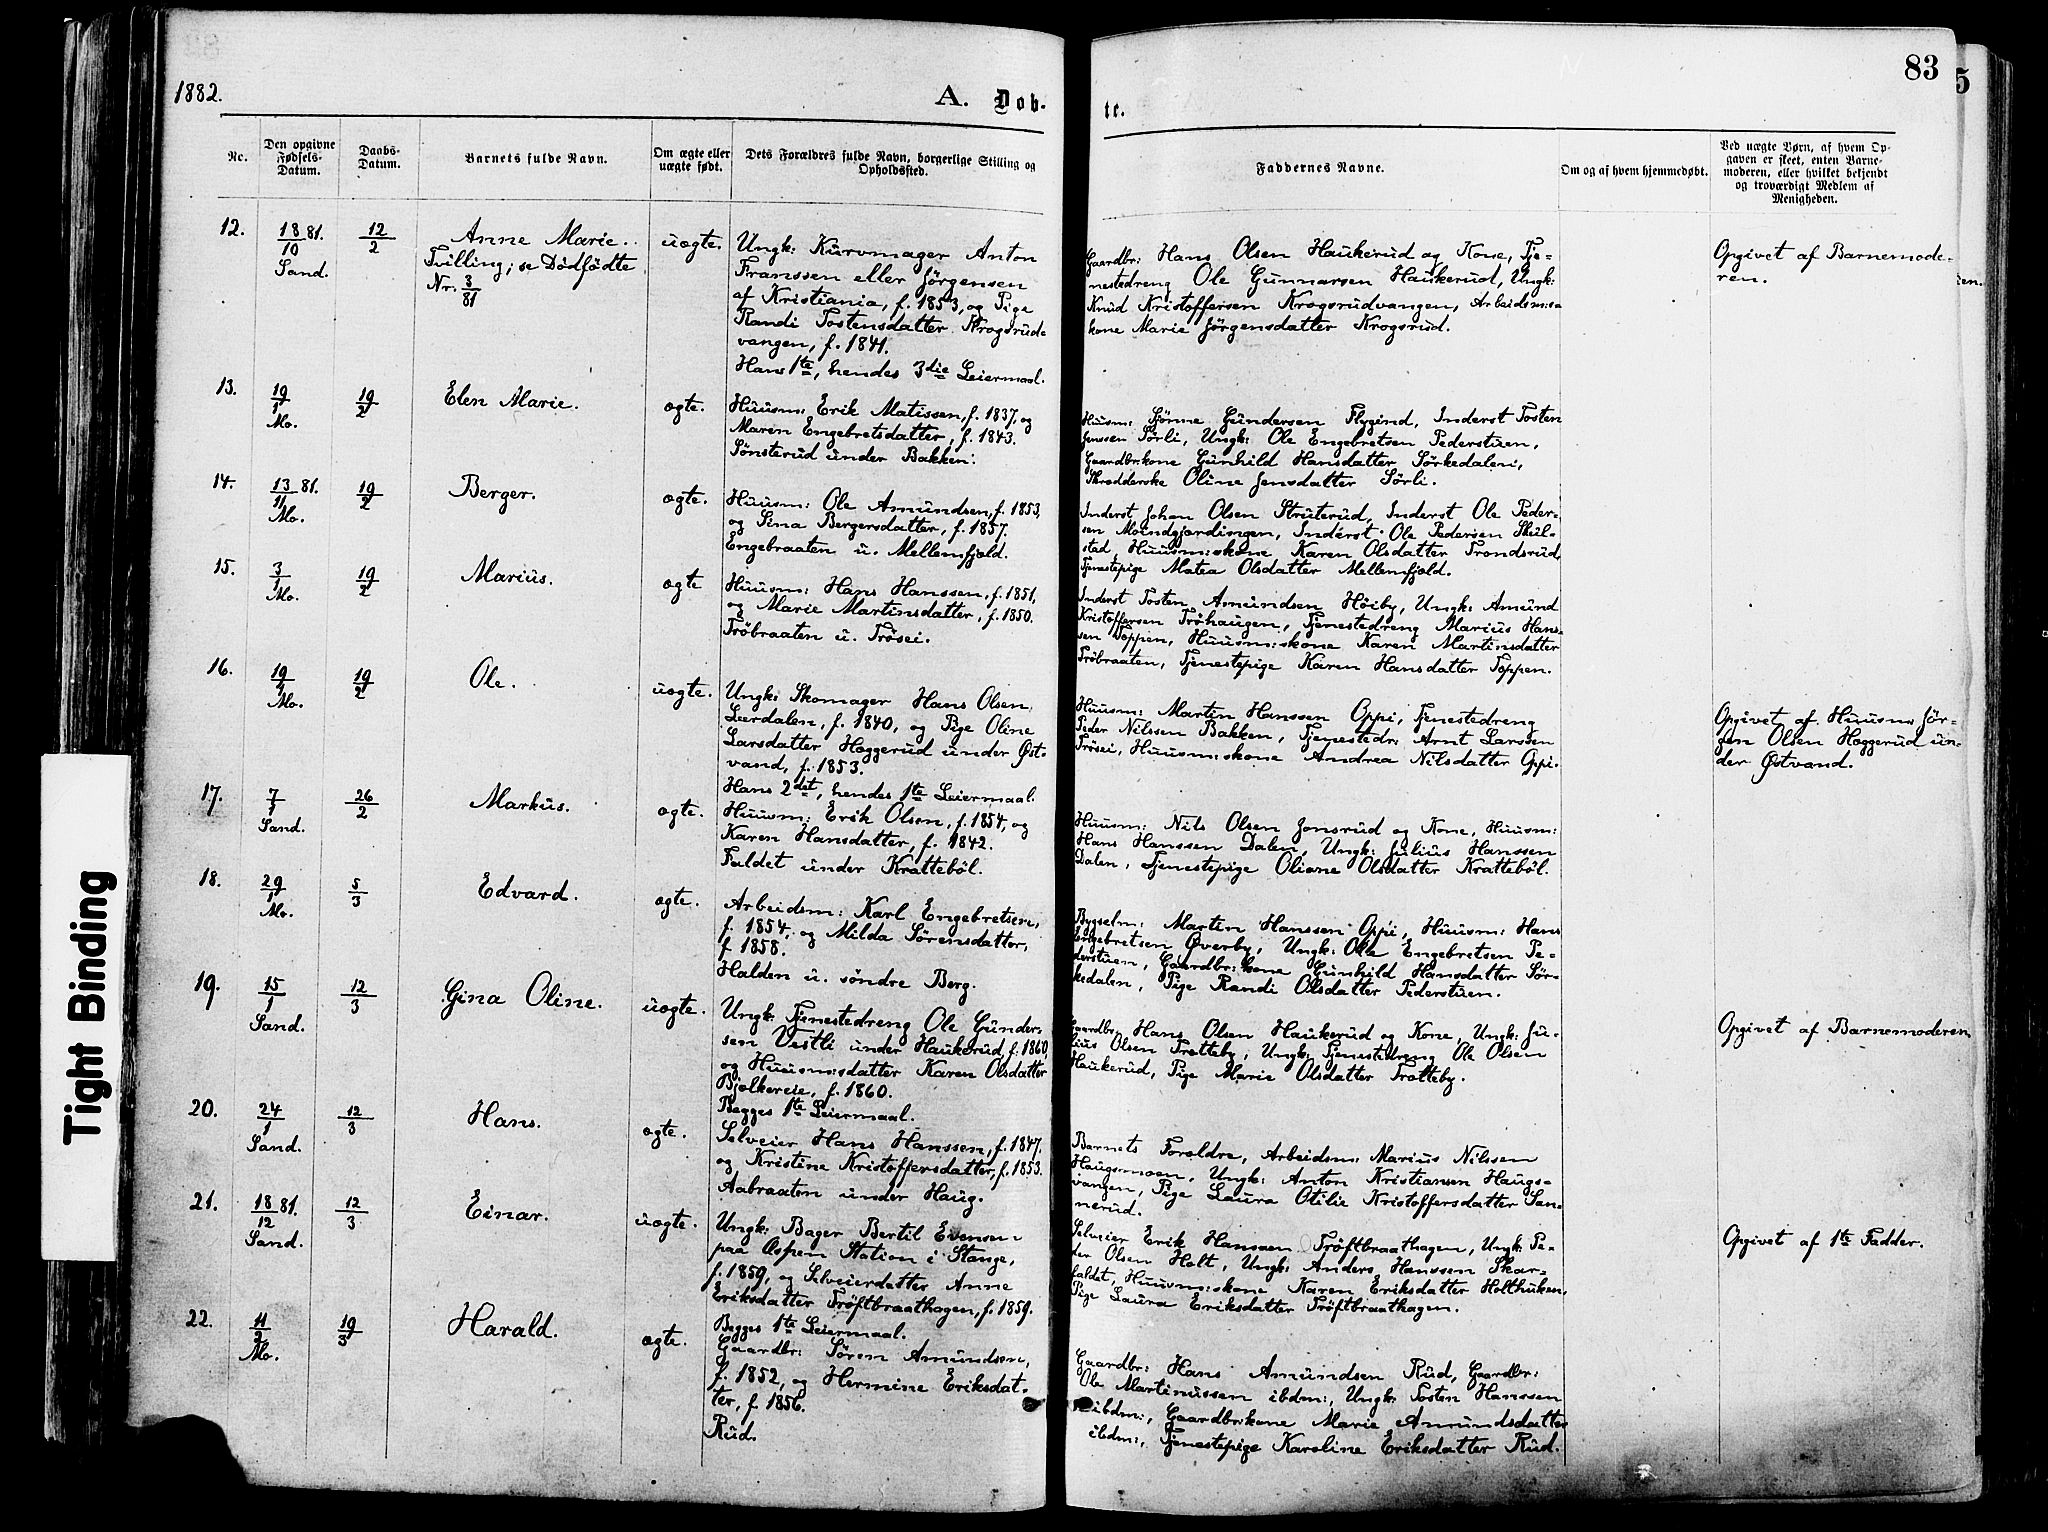 1882.
A. Døb-
te.
83
5
Nr.
Den opgivne
Fødsels-
Datum.
Daabs-
Datum.
Barnets fulde Navn.
Om ægte eller
uægte født.
Dets Forældres fulde Navn, borgerlige Stilling og
Opholdssted.
Faddernes Navne.
Om og af hvem hjemmedøbt.
Ved uægte Børn, af hvem Op-
gaven er skeet, enten Barne-
moderen, eller hvilket bekjendt
og troværdigt Medlem af
Menigheden.
12.
18/10 81.
Sand.
12/2
Anne Marie.
Tvilling; se Dødfødte
Nr. 3/81
uægte.
Ungk: Kurvmager Anton
Franssen eller Jørgensen
af Kristiania, f. 1853, og Pige
Randi Tostensdatter Krogsrud-
vangen, f. 1841.
Hans 1te, hendes 3die Leiermaal.
Gaardbr: Hans Olsen Haukerud og Kone, Tje-
nestedreng Ole Gunnarsen Haukerud, Ungk:
Knud Kristoffersen Krogsrudvangen, Arbeidsm:s-
kone Marie Jørgensdatter Krogsrud.
Opgivet af Barnemode-
ren.
13.
19/1
Mo.
19/2
Elen Marie.
ægte.
Huusm: Erik Matissen, f. 1837, og
Maren Engebretsdatter, f. 1843.
Sønsterud under Bakken.
Huusm: Sjønne Gundersen Flygind, Inderst Tosten
Jenssen Sørli, Ungk: Ole Engebretsen Pederstuen,
Gaardbr:kone Gunhild Hansdatter Sørkedalen,
Skrædderske Oline Jensdatter Sørli.
14.
13/11 81.
Mo.
19/2
Berger.
ægte.
Huusm: Ole Amundsen, f. 1853,
og Sina Bergersdatter, f. 1857.
Engebraaten u. Mellemfjeld.
Inderst Johan Olsen Struterud, Inderst Ole Peder-
sen Moindgjordingen, Inderst Ole Pedersen Skul-
stad, Huusm:skone Karen Olsdatter Trondsrud,
Tjenestepige Matea Olsdatter Mellemfjeld.
15.
3/1
Mo.
19/2
Marius.
ægte
Huusm: Hans Hanssen, f. 1851,
og Marie Martinsdatter, f. 1850.
Trøbraaten u. Trøsei.
Inderst Tosten Amundsen Høiby, Ungk: Amund
Kristoffersen Trøhaugen, Tjenestedreng Marius Hans-
sen Toppen, Huusm:skone Karen Martinsdatter
Trøbraaten, Tjenestepige Karen Hansdatter Toppen.
16.
Mo.
19/2
Ole.
uægte.
Ungk: Skomager Hans Olsen
Leerdalen, f. 1840, og Pige Oline
Larsdatter Haggerud under Øst-
vand, f. 1853.
Hans 2det, hendes 1te Leiermaal.
Huusm: Martin Hanssen Oppi, Tjenestedreng
Peder Nilssen Bakken, Tjenestedr: Arnt Larssen
Trøsei, Huusm:skone Andrea Nilsdatter Oppi.
Opgivet af Huusm: Jør-
gen Olsen Haggerud un-
der Østvand.
17.
7/1
Sand.
26/2
Markus.
ægte.
Huusm: Erik Olsen, f. 1854, og
Karen Hansdatter, f. 1842.
Faldet under Kratteböl.
Huusm: Nils Olsen Jonsrud og Kone, Huusm:
Hans Hanssen Dalen, Ungk: Julius Hanssen
Dalen, Tjenestepige Oliane Olsdatter Kratteböl.
18.
29/1
Mo.
5/3
Edvard.
ægte.
Arbeidsm: Karl Engebretsen,
f. 1854, og Milda Sørensdatter,
f. 1858.
Halden u. søndre Berg.
Bygselm: Martin Hanssen Oppi, Huusm: Hans
Engebretsen Øverby, Ungk: Ole Engebretsen Pe-
derstuen, Gaardbr:kone Gunhild Hansdatter Sør-
kedalen, Pige Randi Olsdatter Pederstuen.
19.
15/1
Sand.
12/3
Gina Oline.
uægte.
Ungk: Tjenestedreng Ole Gunder-
sen Vestli under Haukerud, f. 1860,
og Huusm:sdatter Karen Olsdatter
Bjølkereie, f. 1860.
Begges 1te Leiermaal.
Gaardbr: Hans Olsen Haukerud og Kone, Ungk: Ju-
lius Olsen Trætteby, Ungk: Tjenestedreng Ole Olsen
Haukerud, Pige Marie Olsdatter Trætteby.
Opgivet af Barnemoderen
20.
24/1
Sand.
12/3
Hans.
ægte.
Selveier Hans Hanssen, f. 1847,
og Kristine Kristoffersdatter, f. 1853.
Aabraaten under Haug.
Barnets Forældre, Arbeidsm: Marius Nilssen
Haugsmoen, Ungk: Anton Kristiansen Haugs-
vangen, Pige Laura Otilie Kristoffersdatter San-
nerud.
21.
18/12 81.
Sand.
12/3
Einar.
uægte.
Ungk: Bager Bertil Evensen
paa Ospen Station i Stange,
f. 1859, og Selveierdatter Anne
Eriksdatter Trøftbraathagen, f. 1859.
Begges 1te Leiermaal.
Selveier Erik Hanssen Trøftbraathagen, Ungk: Pe-
der Olsen Holt, Ungk: Anders Hanssen Skar-
faldet, Huusm:skone Karen Eriksdatter Holthuken,
Pige Laura Eriksdatter Trøftbraathagen.
Opgivet af 1te Fadder.
22.
11/2
Mo.
19/3
Harald.
ægte.
Gaardbr: Søren Amundsen,
f. 1852, og Hermine Eriksdat-
ter, f. 1856.
Rud.
Gaardbr: Hans Amundsen Rud, Gaardbr:
Ole Martinussen ibdm:, Ungk: Tosten Hanssen
ibdm:, Gaardbr:kone Marie Amundsdatter
ibdm:, Tjenestepige Karoline Eriksdatter Rud.
Tight Binding